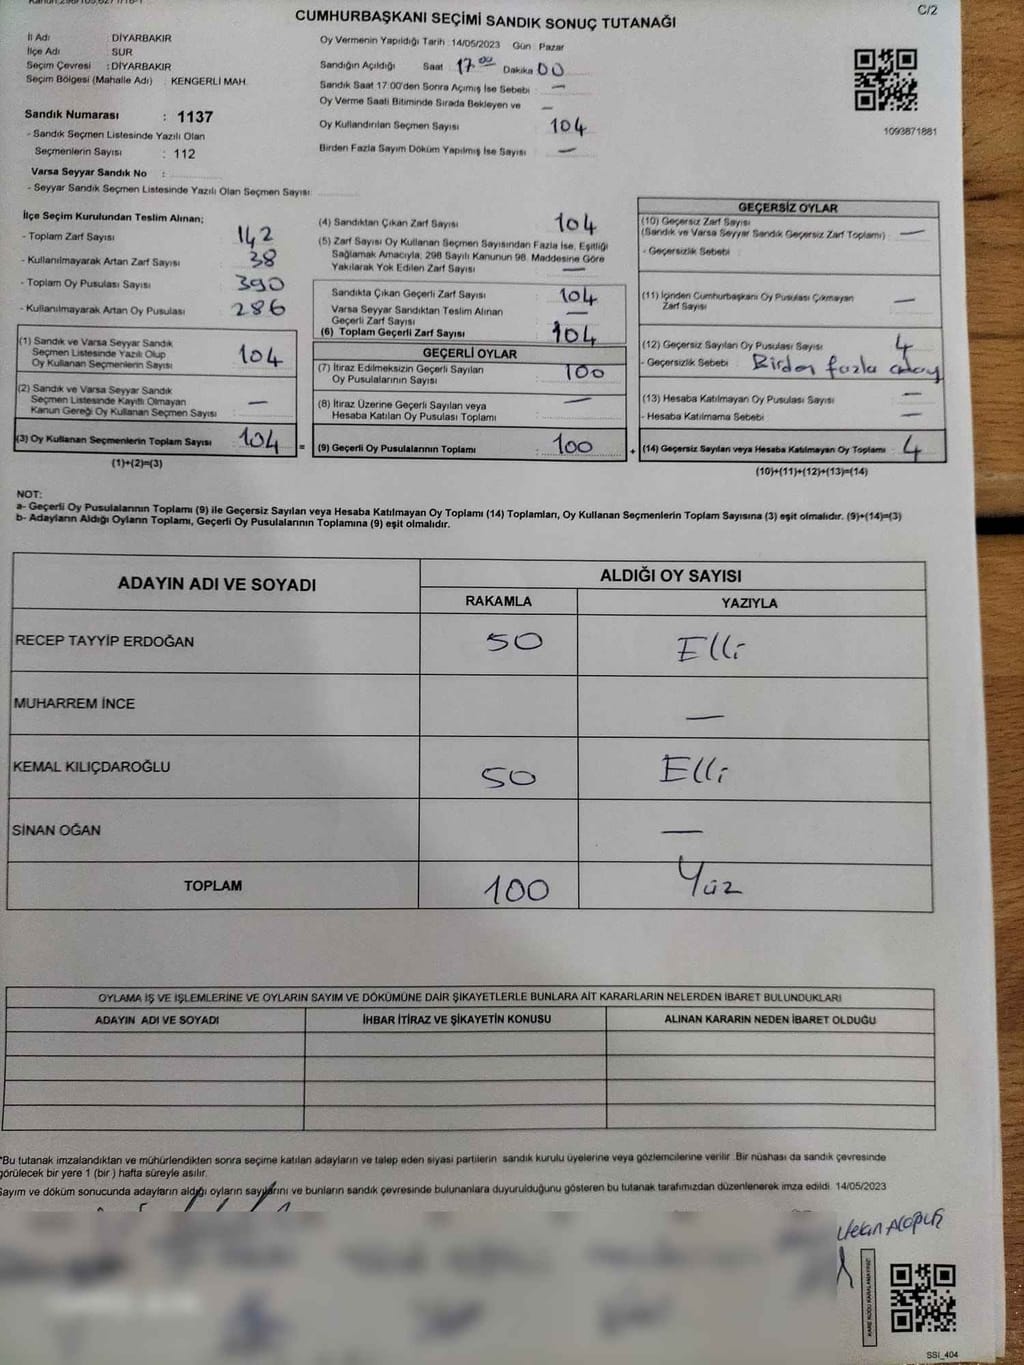 CUMHURBAŞKANI SEÇİMİ SANDIK SONUÇ TUTANAĞI
C/2
İl Adı : DİYARBAKIR
İlçe Adı : SUR
Seçim Çevresi : DİYARBAKIR
Seçim Bölgesi (Mahalle Adı) : KENGERLİ MAH.
Sandık Numarası : 1137
- Sandık Seçmen Listesinde Yazılı Olan
Seçmenlerin Sayısı : 112
Varsa Seyyar Sandık No :
- Seyyar Sandık Seçmen Listesinde Yazılı Olan Seçmen Sayısı:
Oy Vermenin Yapıldığı Tarih : 14/05/2023 Gün : Pazar
Sandığın Açıldığı Saat 17.00 Dakika 00
Sandık Saat 17:00'den Sonra Açımış İse Sebebi : —
Oy Verme Saati Bitiminde Sırada Bekleyen ve —
Oy Kullandırılan Seçmen Sayısı 104
Birden Fazla Sayım Döküm Yapılmış İse Sayısı —
1093871881
İlçe Seçim Kurulundan Teslim Alınan;
- Toplam Zarf Sayısı 142
- Kullanılmayarak Artan Zarf Sayısı 38
- Toplam Oy Pusulası Sayısı 390
- Kullanılmayarak Artan Oy Pusulası 286
(1) Sandık ve Varsa Seyyar Sandık
Seçmen Listesinde Yazılı Olup
Oy Kullanan Seçmenlerin Sayısı 104
(2) Sandık ve Varsa Seyyar Sandık
Seçmen Listesinde Kayıtlı Olmayan
Kanun Gereği Oy Kullanan Seçmen Sayısı : —
(3) Oy Kullanan Seçmenlerin Toplam Sayısı 104 =
(1)+(2)=(3)
(4) Sandıktan Çıkan Zarf Sayısı 104
(5) Zarf Sayısı Oy Kullanan Seçmen Sayısından Fazla İse, Eşitliği
Sağlamak Amacıyla, 298 Sayılı Kanunun 98. Maddesine Göre
Yakılarak Yok Edilen Zarf Sayısı —
Sandıkta Çıkan Geçerli Zarf Sayısı 104
Varsa Seyyar Sandıktan Teslim Alınan
Geçerli Zarf Sayısı —
(6) Toplam Geçerli Zarf Sayısı 104
GEÇERLİ OYLAR
(7) İtiraz Edilmeksizin Geçerli Sayılan
Oy Pusulalarının Sayısı : 100
(8) İtiraz Üzerine Geçerli Sayılan veya
Hesaba Katılan Oy Pusulası Toplamı —
(9) Geçerli Oy Pusulalarının Toplamı : 100 +
GEÇERSİZ OYLAR
(10) Geçersiz Zarf Sayısı
(Sandık ve Varsa Seyyar Sandık Geçersiz Zarf Toplamı) : —
- Geçersizlik Sebebi :
(11) İçinden Cumhurbaşkanı Oy Pusulası Çıkmayan
Zarf Sayısı : —
(12) Geçersiz Sayılan Oy Pusulası Sayısı : 4
- Geçersizlik Sebebi : Birden fazla aday
(13) Hesaba Katılmayan Oy Pusulası Sayısı : —
- Hesaba Katılmama Sebebi : —
(14) Geçersiz Sayılan veya Hesaba Katılmayan Oy Toplamı : 4
(10)+(11)+(12)+(13)=(14)
NOT:
a- Geçerli Oy Pusulalarının Toplamı (9) ile Geçersiz Sayılan veya Hesaba Katılmayan Oy Toplamı (14) Toplamları, Oy Kullanan Seçmenlerin Toplam Sayısına (3) eşit olmalıdır. (9)+(14)=(3)
b- Adayların Aldığı Oyların Toplamı, Geçerli Oy Pusulalarının Toplamına (9) eşit olmalıdır.
ADAYIN ADI VE SOYADI ALDIĞI OY SAYISI
RAKAMLA YAZIYLA
RECEP TAYYİP ERDOĞAN 50 Elli
MUHARREM İNCE —
KEMAL KILIÇDAROĞLU 50 Elli
SİNAN OĞAN —
TOPLAM 100 Yüz
OYLAMA İŞ VE İŞLEMLERİNE VE OYLARIN SAYIM VE DÖKÜMÜNE DAİR ŞİKAYETLERLE BUNLARA AİT KARARLARIN NELERDEN İBARET BULUNDUKLARI
ADAYIN ADI VE SOYADI İHBAR İTİRAZ VE ŞİKAYETİN KONUSU ALINAN KARARIN NEDEN İBARET OLDUĞU
*Bu tutanak imzalandıktan ve mühürlendikten sonra seçime katılan adayların ve talep eden siyasi partilerin sandık kurulu üyelerine veya gözlemcilerine verilir. Bir nüshası da sandık çevresinde
görülecek bir yere 1 (bir ) hafta süreyle asılır.
Sayım ve döküm sonucunda adayların aldığı oyların sayılarını ve bunların sandık çevresinde bulunanlara duyurulduğunu gösteren bu tutanak tarafımızdan düzenlenerek imza edildi. 14/05/2023
KARE KODU KARALAMAYINIZ!
SSI_404